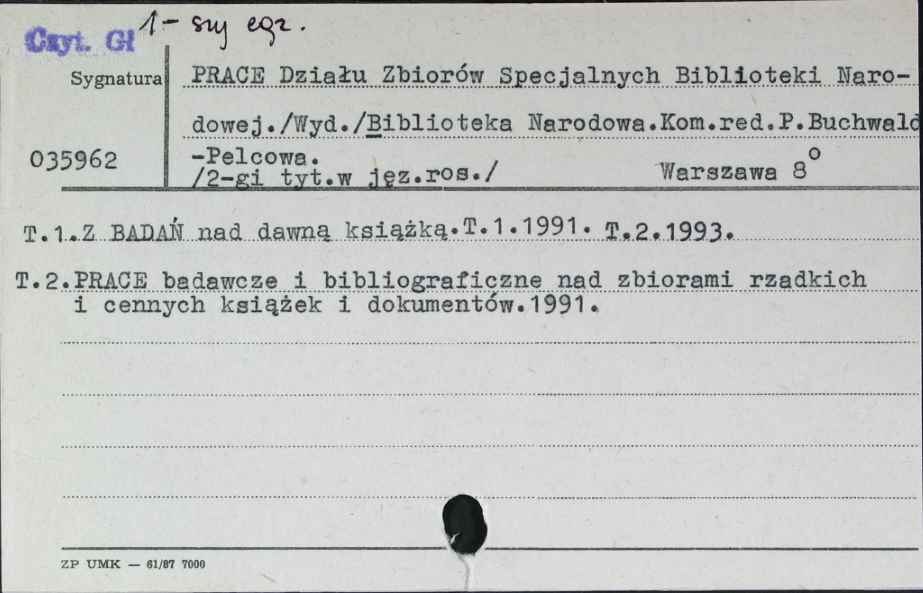 Czyt. Gł 1-szy egz.
Sygnatura PRACE Działu Zbiorów Specjalnych Biblioteki Naro-
dowej./Wyd./Biblioteka Narodowa.Kom.red.P.Buchwald
035962 -Pelcowa.
/2-gi tyt.w jęz.ros./ Warszawa 8°
T.1.Z BADAŃ nad dawną książką.T.1.1991. T.2.1993.
T.2.PRACE badawcze i bibliograficzne nad zbiorami rzadkich
i cennych książek i dokumentów.1991.
ZP UMK — 61/87 7000